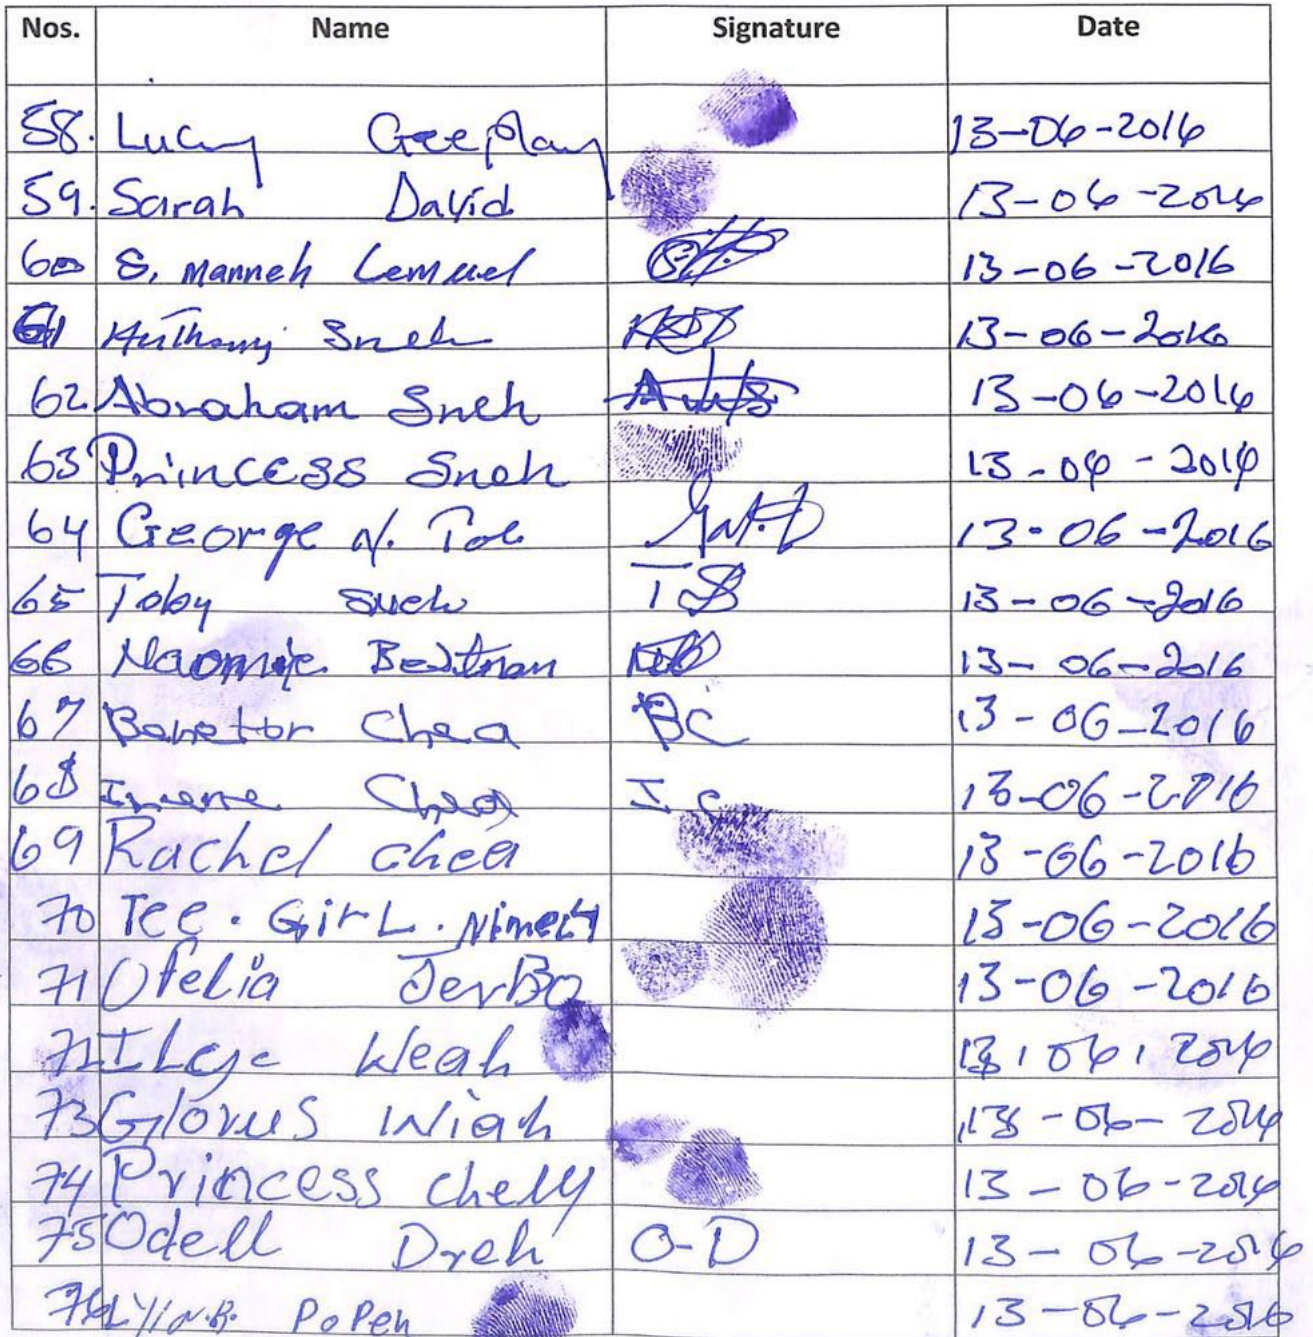 Nos. Name Signature Date
58. Lucy Geeplay 13-06-2016
59. Sarah David 13-06-2016
60 S. Manneh Lemuel 13-06-2016
61 Anthony Sneh 13-06-2016
62 Abraham Sneh 13-06-2016
63 Princess Sneh 13-06-2016
64 George N. Toe 13-06-2016
65 Toby Sneh TS 13-06-2016
66 Naomie 13-06-2016
67 Benetor Chea BC 13-06-2016
68 Chea I C 13-06-2016
69 Rachel Chea 13-06-2016
70 Tee. Girl. Nimely 13-06-2016
71 Ofelia JerBo 13-06-2016
Weah 13,06,2016
73 Glorus Wiah 13-06-2016
74 Princess Chelly 13-06-2016
75 Odell Dreh O-D 13-06-2016
76 Popen 13-06-2016